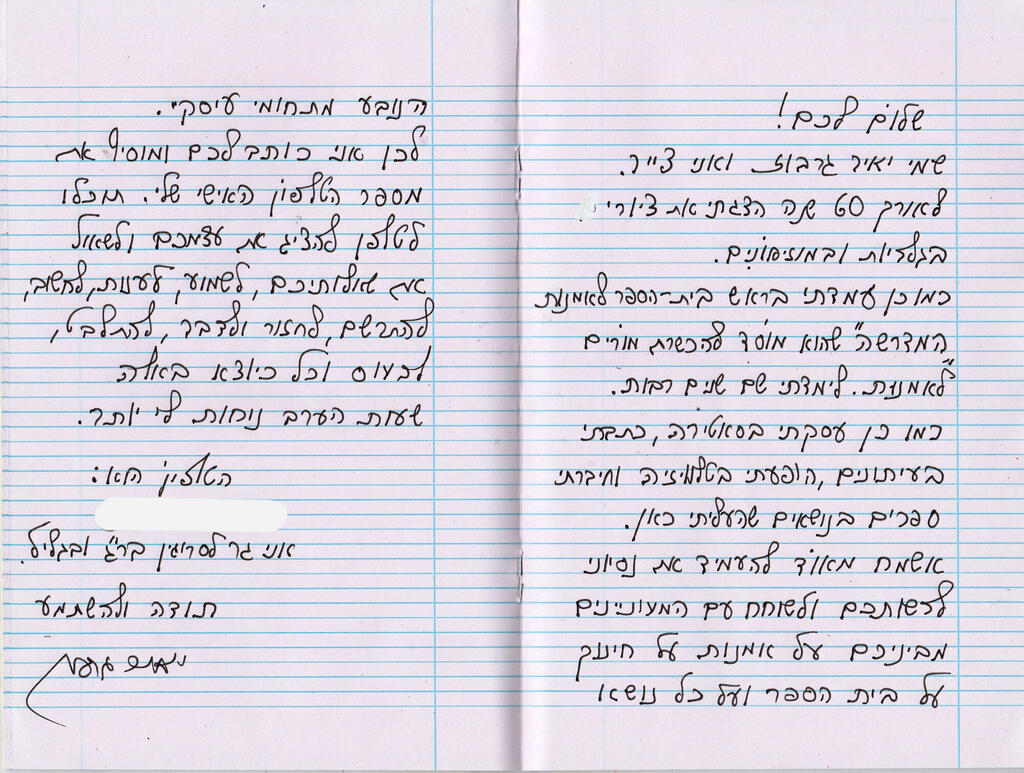 שלום לכם!
שמי יאיר גרבוז ואני צייר.
לאורך 60 שנה הצגתי את ציורי
בגלריות ובמוזיאונים.
כמו כן עמדתי בראש בית-הספר לאמנות
המדרשה" שהוא מוסד להכשרת מורים
"לאמנות. לימדתי שם שנים רבות.
כמו כן עסקתי בסאטירה, כתבתי
בעיתונים, הופעתי בטלוויזיה וחיברתי
ספרים בנושאים שהעליתי כאן.
אשמח מאוד להעמיד את נסיוני
לרשותכם ולשוחח עם המעוניינים
מביניכם על אמנות על חינוך
על בית הספר ועל כל נושא
הנובע מתחומי עיסוקי.
לכן אני כותב לכם ומוסיף את
מספר הטלפון האישי שלי. תוכלו
לטלפן להציג את עצמכם ולשאול
את שאלותיכם, לשמוע, לענות, לחשוב,
להתרשם, לחזור ולדבר, להתלבט,
לכעוס וכל כיוצא באלה
שעות הערב נוחות לי יותר.
הטלפון הוא:
אני גר לסרוגין בר"ג ובגליל.
תודה ולהשתמע
יאיר גרבוז